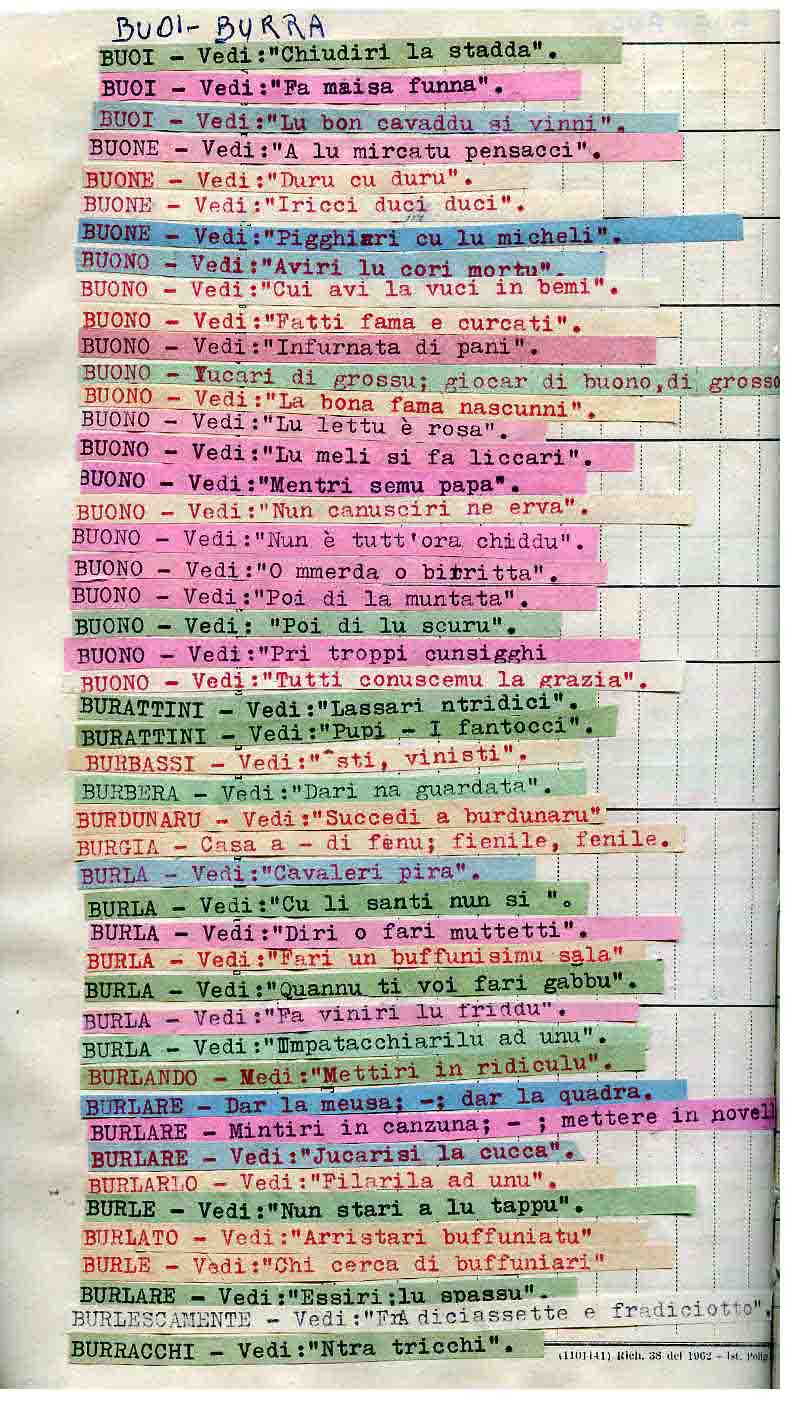 BUOI - BURRA
BUOI - Vedi:"Chiudiri la stadda".
BUOI - Vedi:"Fa maisa funna".
BUOI - Vedi:"Lu bon cavaddu si vinni".
BUONE - Vedi:"A lu mircatu pensacci".
BUONE - Vedi:"Duru cu duru".
BUONE - Vedi:"Iricci duci duci".
BUONE - Vedi:"Pigghiari cu lu micheli".
BUONO - Vedi:"Aviri lu cori mortu".
BUONO - Vedi:"Cui avi la vuci in bemi".
BUONO - Vedi:"Fatti fama e curcati".
BUONO - Vedi:"Infurnata di pani".
BUONO - Yucari di grossu; giocar di buono,di grosso
BUONO - Vedi:"La bona fama nascunni".
BUONO - Vedi:"Lu lettu è rosa".
BUONO - Vedi:"Lu meli si fa liccari".
BUONO - Vedi:"Mentri semu papa".
BUONO - Vedi:"Nun canusciri ne erva".
BUONO - Vedi:"Nun è tutt'ora chiddu".
BUONO - Vedi:"O mmerda o birritta".
BUONO - Vedi:"Poi di la muntata".
BUONO - Vedi: "Poi di lu scuru".
BUONO - Vedi:"Pri troppi cunsigghi
BUONO - Vedi:"Tutti conuscemu la grazia".
BURATTINI - Vedi:"Lassari ntridici".
BURATTINI - Vedi:"Pupi - I fantocci".
BURBASSI - Vedi:"^sti, vinisti".
BURBERA - Vedi:"Dari na guardata".
BURDUNARU - Vedi:"Succedi a burdunaru"
BURGIA - Casa a - di fenu; fienile, fenile.
BURLA - Vedi:"Cavaleri pira".
BURLA - Vedi:"Cu li santi nun si ".
BURLA - Vedi:"Diri o fari muttetti".
BURLA - Vedi:"Fari un buffunisimu sala"
BURLA - Vedi:"Quannu ti voi fari gabbu".
BURLA - Vedi:"Fa viniri lu friddu".
BURLA - Vedi:"Impatacchiarilu ad unu".
BURLANDO - Medi:"Mettiri in ridiculu".
BURLARE - Dar la meusa; -; dar la quadra.
BURLARE - Mintiri in canzuna; - ; mettere in novell
BURLARE - Vedi:"Jucarisi la cucca".
BURLARLO - Vedi:"Filarila ad unu".
BURLE - Vedi:"Nun stari a lu tappu".
BURLATO - Vedi:"Arristari buffuniatu"
BURLE - Vedi:"Chi cerca di buffuniari"
BURLARE - Vedi:"Essiri;lu spassu".
BURLESCAMENTE - Vedi:"FrA diciassette e fradiciotto".
BURRACCHI - Vedi:"Ntra tricchi".
(1101141) Rich. 38 del 1962 - Ist. Polig